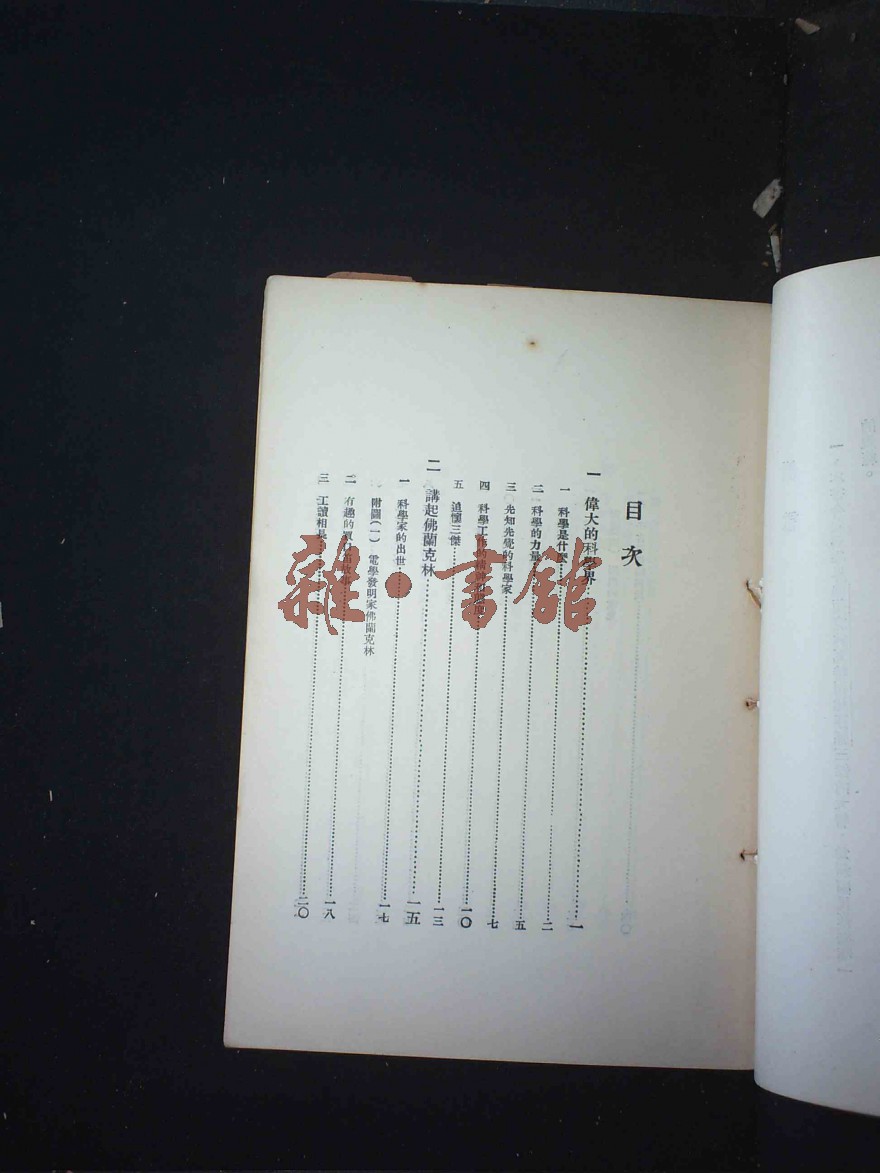 目次
一 偉大的科學界……一
一 科學是什麼……二
二 科學的力量……五
三 先知先覺的科學家……七
四 科學工作的精神……一〇
五 追懷三傑……一三
二 講起佛蘭克林……一五
一 科學家的出世……一七
附圖(一) 電學發明家佛蘭克林
二 有趣的……一八
三 工讀相長……二〇
雜·書館